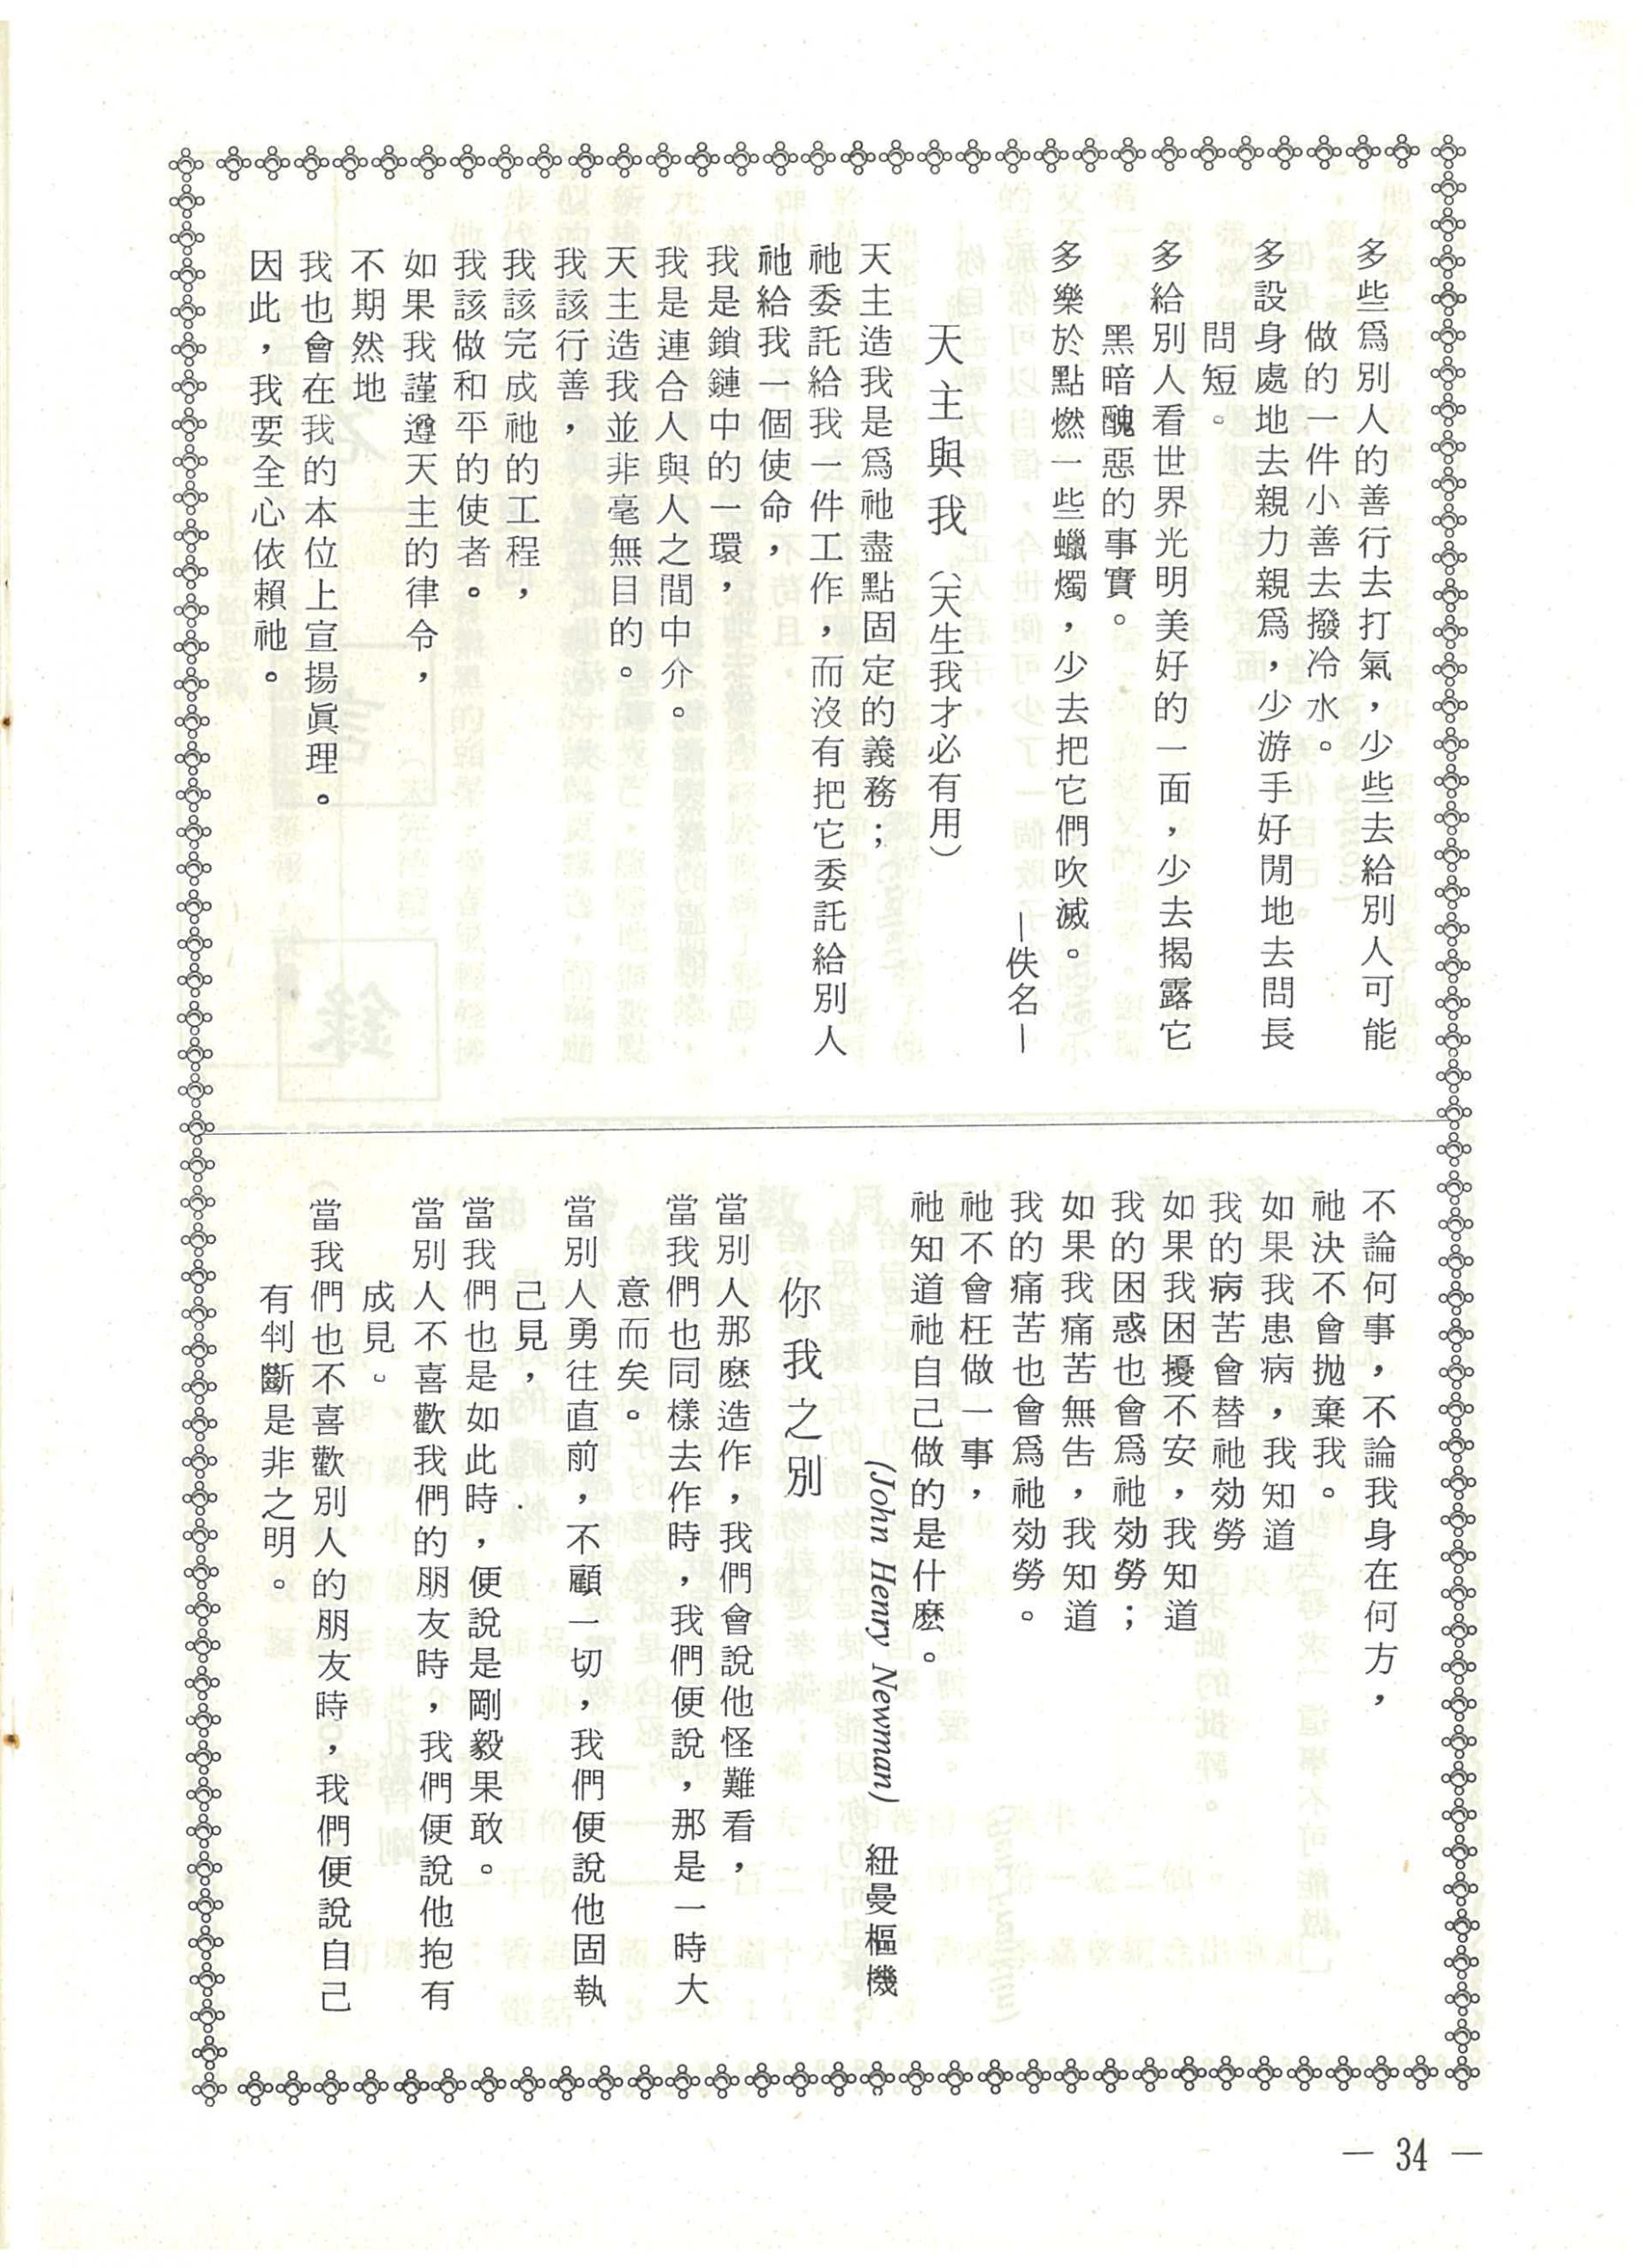 多些爲別人的善行去打氣，少些去給別人可能
做的一件小善去撥冷水。
多設身處地去親力親爲，少游手好閒地去問長
問短。
多給別人看世界光明美好的一面，少去揭露它
黑暗醜惡的事實。
多樂於點燃一些蠟燭，少去把它們吹滅。
—佚名—
天主與我（天生我才必有用）
天主造我是爲祂盡點固定的義務；
祂委託給我一件工作，而沒有把它委託給別人
祂給我一個使命，
我是鎖鏈中的一環，
我是連合人與人之間中介。
天主造我並非毫無目的。
我該行善，
我該完成祂的工程，
我該做和平的使者。
如果我謹遵天主的律令，
不期然地
我也會在我的本位上宣揚眞理。
因此，我要全心依賴祂。
不論何事，不論我身在何方，
祂決不會拋棄我。
如果我患病，我知道
我的病苦會替祂効勞
如果我困擾不安，我知道
我的困惑也會爲祂効勞；
如果我痛苦無告，我知道
我的痛苦也會爲祂効勞。
祂不會枉做一事，
祂知道祂自己做的是什麽。
(John Henry Newman) 紐曼樞機
你我之別
當別人那麽造作，我們會說他怪難看，
當我們也同樣去作時，我們便說，那是一時大
意而矣。
當別人勇往直前，不顧一切，我們便說他固執
己見，
當我們也是如此時，便說是剛毅果敢。
當別人不喜歡我們的朋友時，我們便說他抱有
成見。
當我們也不喜歡別人的朋友時，我們便說自己
有判斷是非之明。
— 34 —